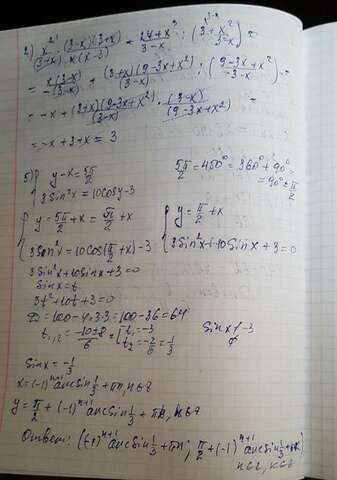 2) x²·(3-x)(3+x) / (3+x)·x(x-3) + 27+x³ / 3-x : (3 + x² / 3-x) =
= x(3-x) / -(3-x) + (3+x)(9-3x+x²) / (3-x) : (9-3x+x² / 3-x) =
= -x + (3+x)(9-3x+x²) / (3-x) · (3-x) / (9-3x+x²) =
= -x+3+x = 3
5) { y-x = 5π/2
3sin²x = 10cosy-3
5π/2 = 450° = 360°+90° =
= 90° = π/2
{ y = 5π/2 + x = π/2 + x
3sin²x = 10cos(π/2+x)-3
{ y = π/2 + x
3sin²x+10sinx+3=0
3sin²x+10sinx+3=0
sinx=t
3t²+10t+3=0
D=100-4·3·3=100-36=64
t₁,₂ = -10±8 / 6 = [ t₁=-3
t₂=-2/6=-1/3
sinx≠-3
∅
sinx = -1/3
x=(-1)ⁿ⁺¹arcsin 1/3 + πn, n∈Z
y = π/2 + (-1)ⁿ⁺¹ arcsin 1/3 + πn, n∈Z
Ответ: ((-1)ⁿ⁺¹ arcsin 1/3 + πn; π/2 + (-1)ⁿ⁺¹ arcsin 1/3 +
n∈Z, k∈Z